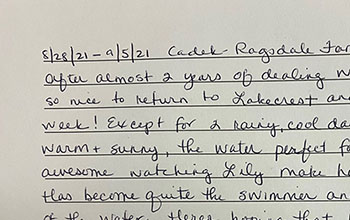 8/28/21 - 9/5/21 Cadek Ragsdale
after almost 2 years of dealing
so nice to return to Lakecrest an
week! Except for 2 rainy, cool da
warm + sunny, the water perfect f
awesome watching Lily make h
Has become quite the swimmer an
of the water. Heres hoping that